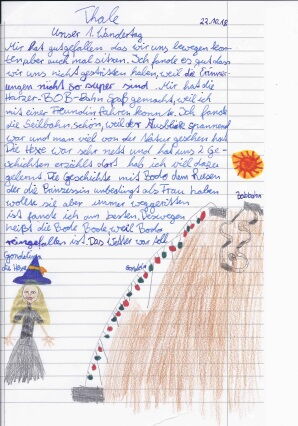 Thale
22.10.18
Unser 1. Wandertag
Mir hat gutgefallen das wir uns bewegen kon-
ten aber auch mal sitzen. Ich fande es gut das
wir uns nicht gestritten haben, weil die Erinner-
ungen nicht so super sind. Mir hat die
Harzer-BOB-Bahn Spaß gemacht, weil ich
mit einer Freundin fahren konnte. Ich fande
die Seilbahn schön, weil der Ausblick spannend
war und man viel von der Natur gesehen hat.
Die Hexe war sehr nett und hat uns 2 Ge-
schichten erzählt dort hab ich viel dazu
gelernt. Die Geschichte mit Bodo dem Riesen
der die Prinzessin unbedingt als Frau haben
wollte sie aber immer weggeritten
ist fande ich am besten. Deswegen
heißt die Bode Bode, weil Bodo
reingefallen ist. Das Wetter war toll.
Bobbahn
Gondel
die Hexe